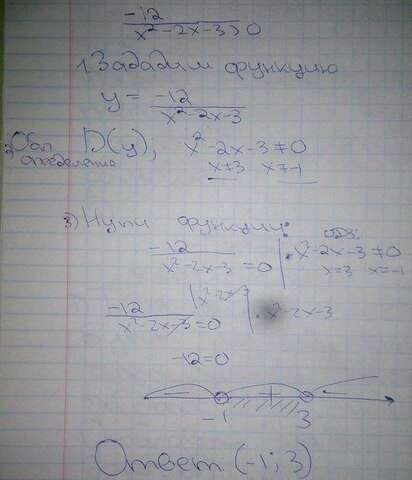 -12
x²-2x-3 > 0
1. Зададим функцию
y = -12
x²-2x-3
2) Обл. D(y); x²-2x-3≠0
определения x≠3 x≠-1
3) Нули функции:
-12 ОДЗ:
x²-2x-3 =0 | x²-2x-3≠0
x=3 x=-1
-12 | x²-2x-3 | · x²-2x-3
x²-2x-3 =0
-12=0
- + -
-1 3
Ответ (-1; 3)